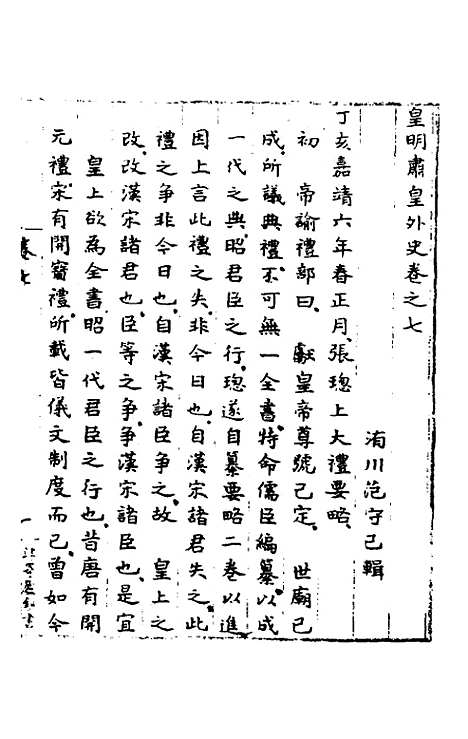 皇明肅皇外史卷之七
洧川范守己輯
丁亥嘉靖六年春正月張璁上大禮要略
初 帝諭禮部曰 獻皇帝尊號已定 世廟已
成所議典禮不可無一全書特命儒臣編纂以成
一代之典昭君臣之行璁遂自纂要略二卷以進
因上言此禮之失非今日也自漢宋諸君失之此
禮之爭非今日也自漢宋諸臣爭之故 皇上之
改改漢宋諸君也臣等之爭爭漢宋諸臣也是宜
皇上欲為全書昭一代君臣之行也昔唐有開
元禮宋有開寶禮所載皆儀文制度而已曾如今
卷七
一